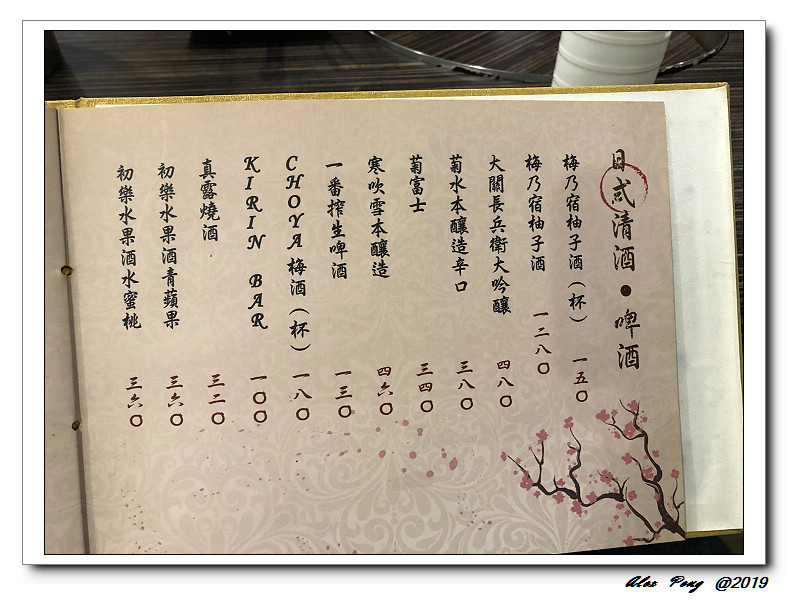 日式清酒●啤酒
梅乃宿柚子酒(杯) 一五〇
梅乃宿柚子酒 一二八〇
大關長兵衛大吟釀 四八〇
菊水本釀造辛口 三八〇
菊富士 三四〇
寒吹雪本釀造 四六〇
一番搾生啤酒 一三〇
CHOYA梅酒(杯) 一八〇
KIRIN BAR 一〇〇
真露燒酒 三二〇
初樂水果酒青蘋果 三六〇
初樂水果酒水蜜桃 三六〇
Alex Peng @2019